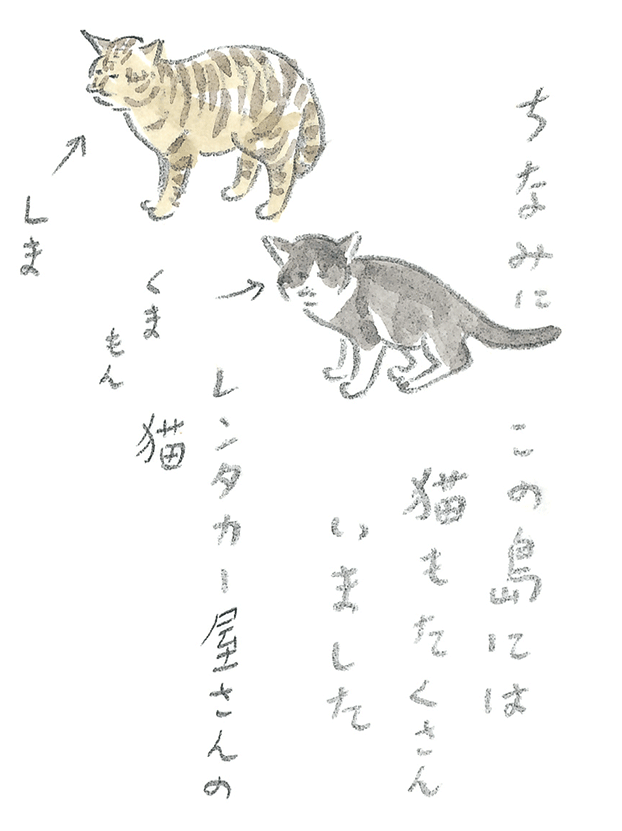 ちなみに
この島には
猫もたくさん
いました
レンタカー屋さんの
くま
もん
猫
しま